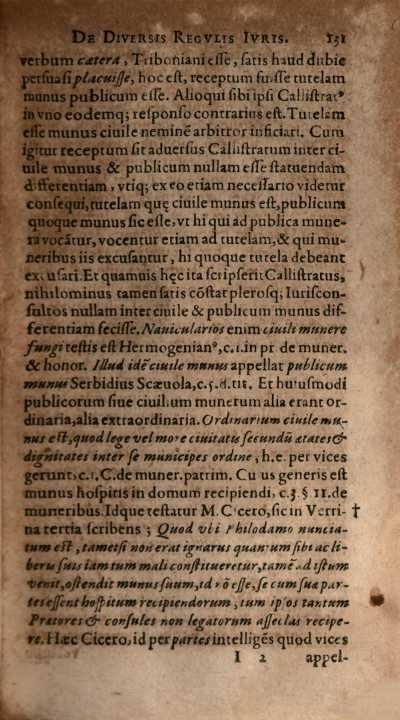 DE DIVERSIS REGVLIS IVRIS. 131
verbum cætera, Triboniani esse, satis haud dubie
persuasi placuisse, hoc est, receptum fuisse tutelam
munus publicum esse. Alioqui sibi ipsi Callistrat⁹
in vno eodemq; responso contrarius est. Tutelam
esse munus ciuile neminē arbitror inficiari. Cum
igitur receptum sit aduersus Callistratum inter ci-
uile munus & publicum nullam esse statuendam
differentiam, vtiq; ex eo etiam necessario videtur
consequi, tutelam quę ciuile munus est, publicum
quoque munus sic esse, vt hi qui ad publica mune-
ra vocātur, vocentur etiam ad tutelam, & qui mu-
neribus iis excusantur, hi quoque tutela debeant
excusari. Et quamuis hęc ita scripserit Callistratus,
nihilominus tamen satis cōstat plerosq; Iuriscon-
sultos nullam inter ciuile & publicum munus dif-
ferentiam fecisse. Nauicularios enim ciuili munere
fungi testis est Hermogenian⁹, c. 1. in pr. de muner.
& honor. Illud idē ciuile munus appellat publicum
munus Serbidius Scæuola, c. 5. d. tit. Et huiusmodi
publicorum siue ciuilium munerum alia erant or-
dinaria, alia extraordinaria. Ordinarium ciuile mu-
nus est, quod lege vel more ciuitatis secundū ætates &
dignitates inter se municipes ordine, h.e. per vices
gerunt, c. 1. C. de muner. patrim. Cuius generis est
munus hospitis in domum recipiendi, c. 3. § 11. de
muneribus. Idque testatur M. Cicero, sic in Verri- †
na tertia scribens; Quod vbi Philodamo nuncia-
tum est, tametsi non erat ignarus quantum sibi ac li-
beris suis iam tum mali constitueretur, tamē ad istum
venit, ostendit munus suum, id nō esse, se cum suæ par-
tes essent hospitum recipiendorum, tum ipsos tantum
Prætores & consules non legatorum asseclas recipe-
re. Hæc Cicero, id per partes intelligēs quod vices
I 2 appel-